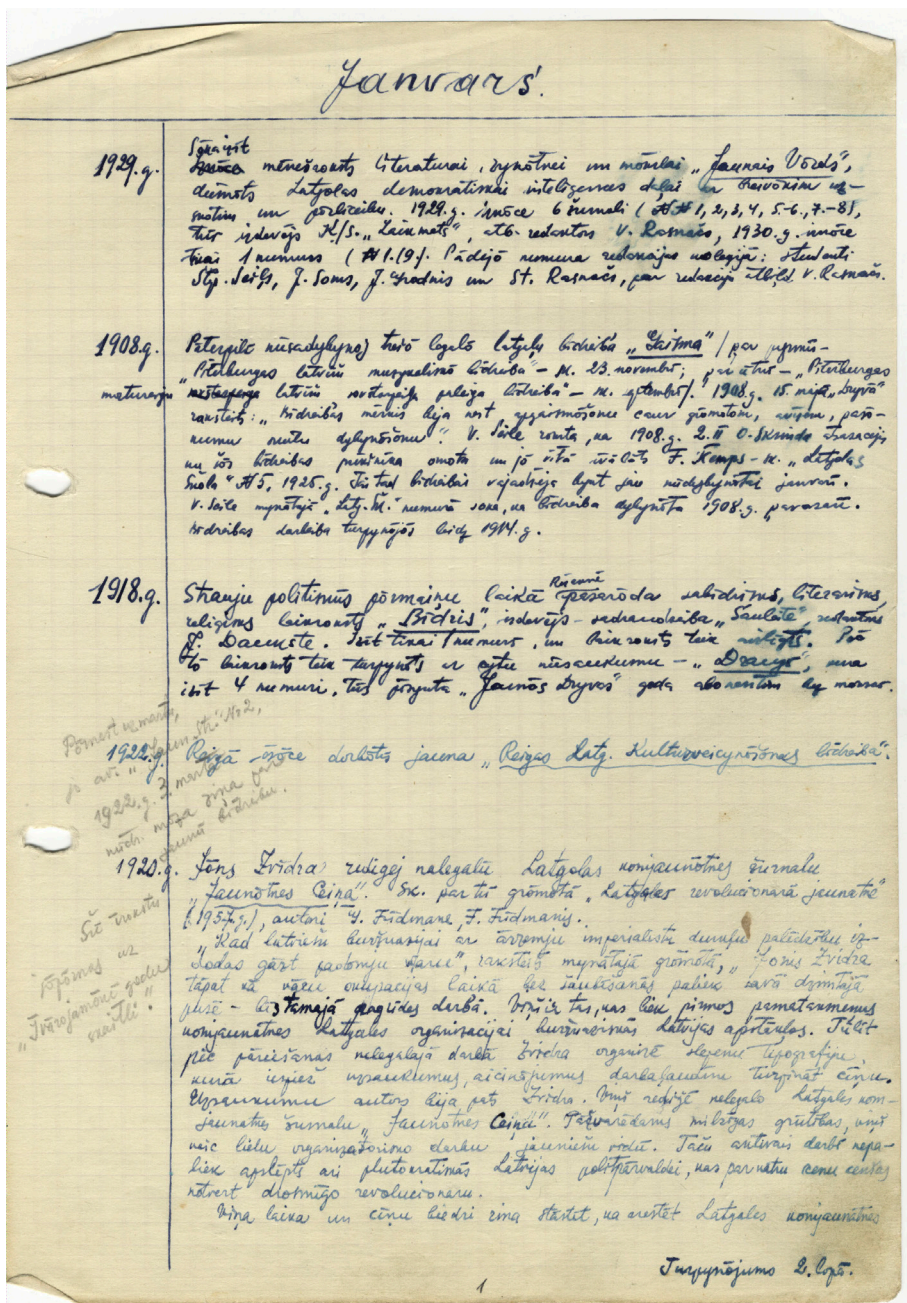 Janvarś.
1929.g.
Sōkūt
mēnešroksts literaturai, zynōtnei un mōkslai „Jaunais Vōrds",
domōts Latgolas demokratiskai inteligences daļai ar breivokim uz-
skotim un pōrlīceibu. 1929.g. iznōce 6 žurnali (№№ 1, 2, 3, 4, 5.-6., 7.-8),
izdevējs K/S. „Laikmats", atb. redaktors V. Rasnačs, 1930.g. iznōce
tikai 1 numurs (№ 1.(9). Pādējō numura redakcijas kolegijā: studenti
Stp. Seiļs, J. Soms, J. Grodnis un St. Rasnačs, par redakciju atbild. V. Rasnačs.
1908.g.
Pīterpilī nūsadybynoj trešō legalō latgaļu bīdreiba „Gaisma" / par pyrmū-
„Pīterburgas latvīšu muzykaliskō bīdreiba" – sk. 23. novembrī; par ūtrū – „Pīterburgas
materiaju
latvīšu palеiga bīdreiba" – sk. /. 1908.g. 15. majā „Dryvā"
raksteits: „Bīdreibas merkis beja nest apgaismōšonu caur grōmotom, avizem, paš-
V. Seile roksta, ka 1908.g. 2.II O. Skrinda atsacejīs
nu šōs bīdreibas prīkšnīka omota un jō vītā īvālāts F. Kemps – sk. „Latgolas
Škola" № 5, 1925.g. Tai tad bīdreibai vajadzēja byut jau nūdybynotai janvarī.
V. Seile mynātajā „Latg. Šk." numurā soka, ka bīdreiba dybynōta 1908.g. pavasarī.
Bīdreibas darbeiba turpynōjōs leidz 1914.g.
1918.g.
Strauju politiskūs pōrmaiņu laikā Rēzeknē pasarōda sabīdrisks, literarisks,
religisks laikroksts „Bīdrs", izdevējs – sadraudzeiba „Saulеite", redaktors
J. Daukste. Iznōk tikai 1 numurs, un laikroksts teik aizlīgts. Pēc
tō laikroksts teik turpynōts ar cytu nūsaukumu – „Draugs", kura
izīt 4 numuri, „Jaunōs Dryvas" goda abonentim
Pōrnest uz martu,
jo avīz. „Jaun. Str." No 2,
1922.g. 7. martā
nūdr. moza ziņa par
jaunū bīdreibu.
1922.g.
Reigā sōce darbōtīs jauna „Reigas Latg. Kulturveicynōšonas bīdreiba".
1920.g.
Jōņs Zvīdra redigej nalegalu Latgolas komjaunōtnes žurnalu
„Jaunōtnes Ceiņa". Sk. par tū grōmotā „Latgales revolucionārā jaunatne"
(1957.g.), autori Y. Fridmane, F. Fridmanis.
„Kad latviešu buržuazijai ar ārzemju imperialistu durukļu palīdzību iz-
dodas gāzt padomju varu", raksteits mynātajā grōmotā, „Jōnis Zvidra
tāpat kā vācu okupacijas laikā bez šaubīšanās paliek savā dzimtajā
pusē – bīstamajā pagrīdes darbā. Viņš ir tas, kas liek pirmos pamatakmeņus
komjaunātnes Latgales organizacijai buržuaziskās Latvijas apstākļos. Tūlīt
pēc pāriešanas nelegalajā darbā Zvidra organizē slepenu tipografiju,
kurā iespiež uzsaukumus, aicinājumus darbaļaudīm turpināt cīņu.
Uzsaukumu autors bija pats Zvidra. Viņš redigē nelegalo Latgales kom-
jaunatnes žurnalu „Jaunōtnes Ceiņa". Pārvarēdams milzīgas grūtības, viņš
veic lielu organizatorisko darbu jauniešu vidū. Taču aktivais darbs nepa-
liek apslēpts arī plutokratiskās Latvijas politpārvaldei, kas par katru cenu cenšas
notvert drosmīgo revolucionaru.
Viņa laika un cīņu biedri zina stāstīt, ka arestēt Latgales komjaunātnes
Šīt rokstu
jōjōmas uz
„Īvārojamōkūs godu
skaitli".
Turpynōjums 2. lopā.
1